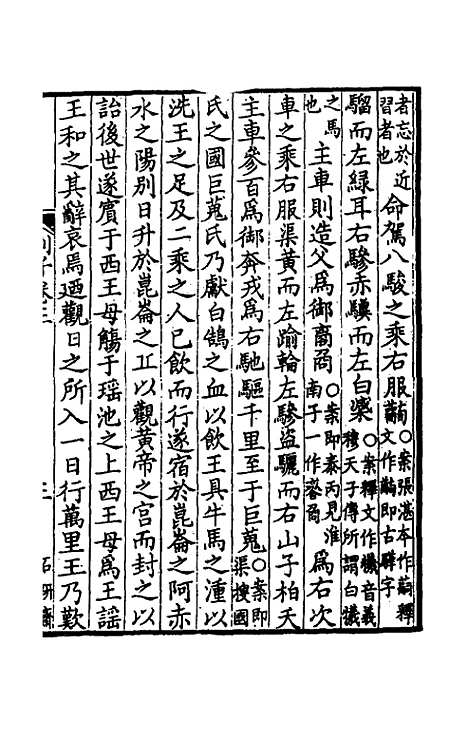 者忘於近習者也命駕八駿之乘右服䯄○案張湛本作䯄釋文作䯄即古驊字
騮而左綠耳右驂赤驥而左白𣚘○案釋文作㸅音義穆天子傳所謂白㸅
之馬也主車則造父為御𦾔㕯○案即泰丙見淮南子一作𦾔㕯為右次
車之乘右服渠黃而左踰輪左驂盜驪而右山子柏夭
主車參百為御奔戎為右馳驅千里至于巨蒐○案即渠搜國
氏之國巨蒐氏乃獻白鵠之血以飲王具牛馬之湩以
洗王之足及二乘之人已飲而行遂宿於崑崙之阿赤
水之陽別日升於崑崙之丘以觀黃帝之宮而封之以
詒後世遂賓于西王母觴于瑤池之上西王母為王謡
王和之其辭哀焉迺觀日之所入一日行萬里王乃歎
列子卷三 三 石研齋